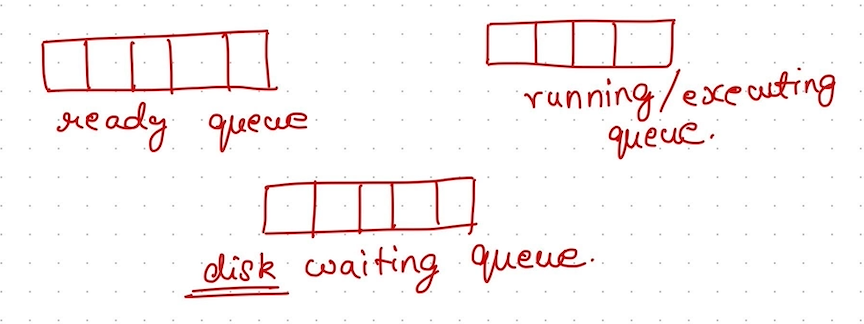 ready queue
running/executing
queue.
disk waiting queue.